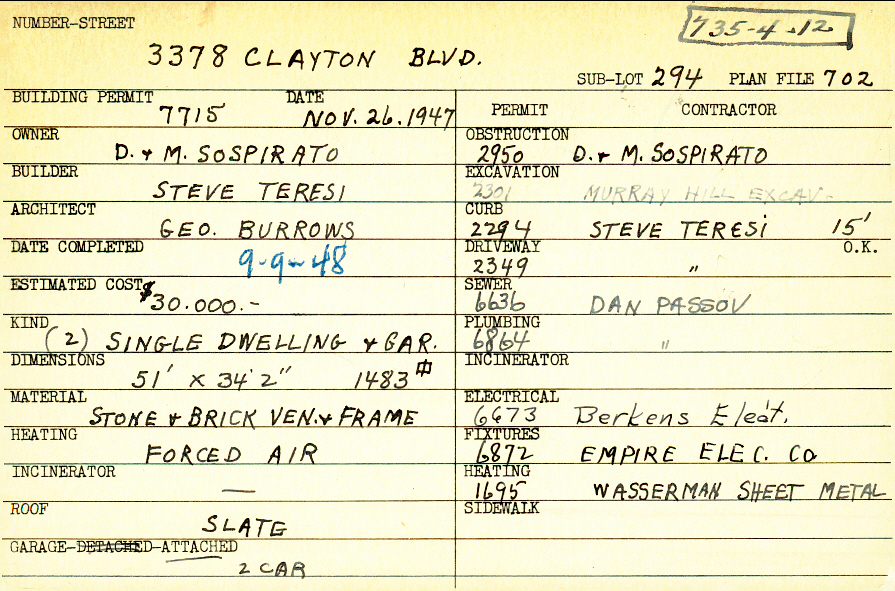 NUMBER-STREET
735-4-12
3378 CLAYTON BLVD.
SUB-LOT 294 PLAN FILE 702
BUILDING PERMIT DATE
7715 NOV. 26. 1947
OWNER
D. & M. SOSPIRATO
BUILDER
STEVE TERESI
ARCHITECT
GEO. BURROWS
DATE COMPLETED
9-9-48
ESTIMATED COST
$30.000.-
KIND
(2) SINGLE DWELLING & GAR.
DIMENSIONS
51' X 34'2" 1483 #
MATERIAL
STONE & BRICK VEN. & FRAME
HEATING
FORCED AIR
INCINERATOR
—
ROOF
SLATE
GARAGE-DETACHED-ATTACHED
2 CAR
PERMIT CONTRACTOR
OBSTRUCTION
2950 D. & M. SOSPIRATO
EXCAVATION
2301 MURRAY HILL EXCAV-
CURB
2294 STEVE TERESI 15'
DRIVEWAY O.K.
2349 "
SEWER
6636 DAN PASSOV
PLUMBING
6864 "
INCINERATOR
ELECTRICAL
6673 Berkens Elect.
FIXTURES
6872 EMPIRE ELEC. Co
HEATING
1695 WASSERMAN SHEET METAL
SIDEWALK